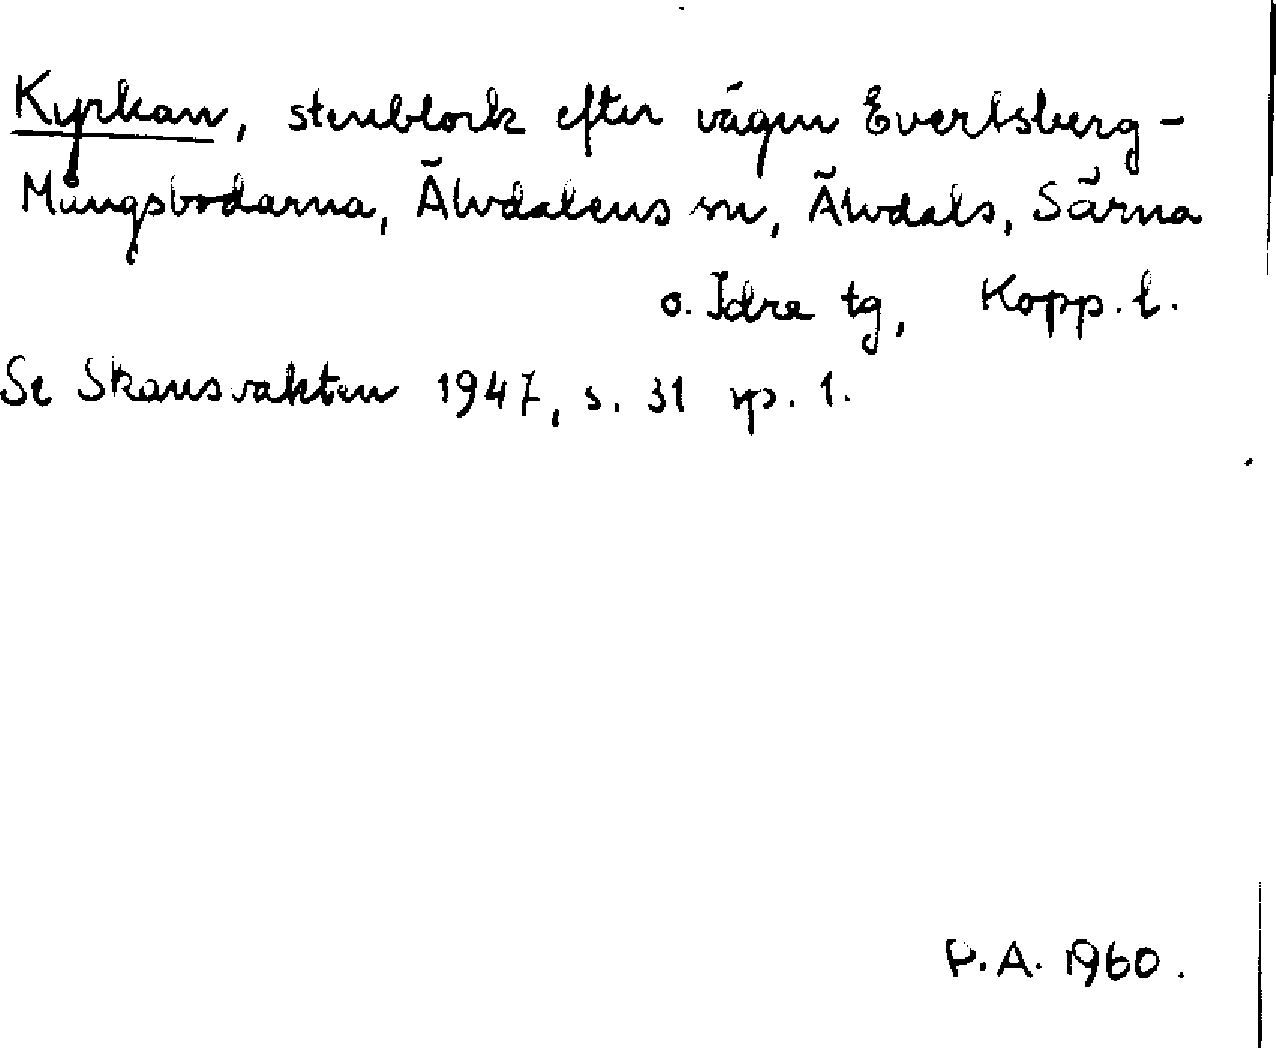 Kyrkan, stenblock efter vägen Evertsberg-
Mångsbodarna, Älvdalens sn, Älvdals, Särna
o. Idre tg, Kopp. l.
Se Skansvakten 1947, s. 31 sp. 1.
P.A. 1960.